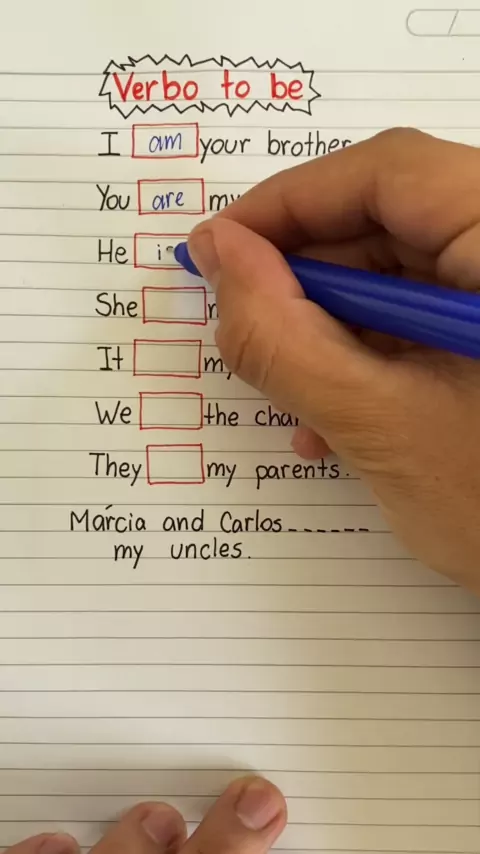 Verbo to be
I am your brother
You are my
He is
She
It my
We the cha
They my parents.
Márcia and Carlos------
my uncles.